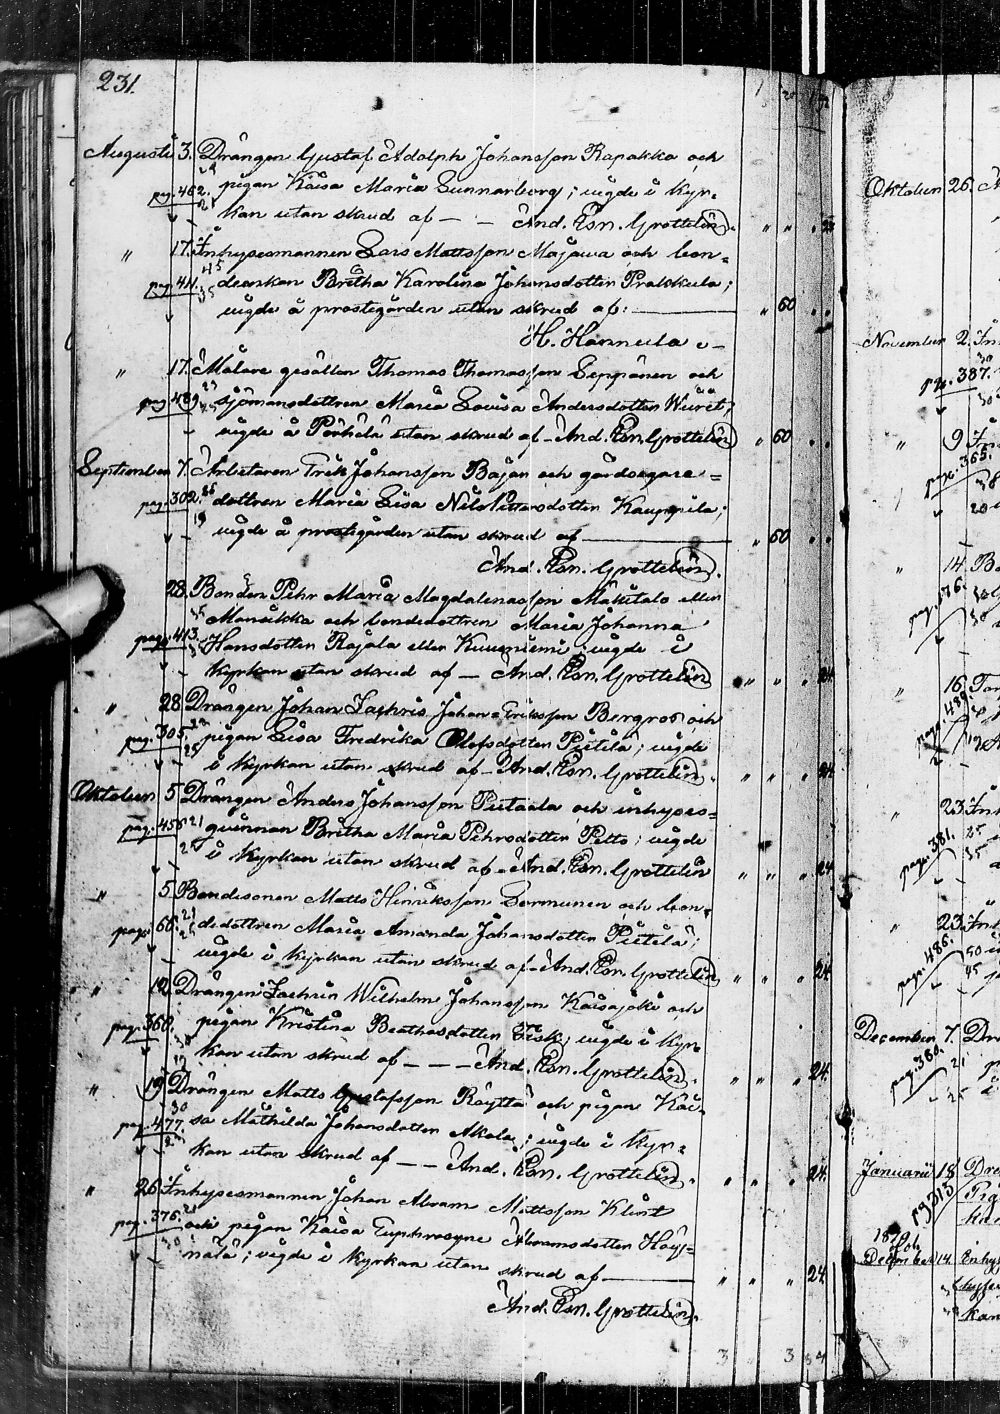 231.
Augusti 3. Drängen Gustaf Adolph Johansson Rapakka och
pag. 462. pigan Kaisa Maria Sunnarborg; vigde i kyr-
kan utan skrud af — — And. Esn. Grottelin. " " . 24
" 17. Inhysesmannen Lars Mattsson Majava och bon-
pag. 411. deenkan Britha Karolina Johansdotter Prakkula;
vigde å prostgården utan skrud af: " 60 . .
H. Hannula
" 17. Målare gesällen Thomas Thomasson Seppänen och
pag. 489. 23 25 sjömansdottren Maria Lovisa Andersdotter Wiirét;
vigde å Pörhelä utan skrud af - And. Esn. Grottelin " 60 . .
September 7. Arbetaren Erik Johansson Bajan och gårdsegare-
pag. 302. dottren Maria Lisa Nils Pettersdotter Kauppila;
19 vigde å prostgården utan skrud af " 60 . .
And. Esn. Grottelin.
28. Bonden Pehr Maria Magdalenasson Mäkitalo eller
Mansikka och bondedottren Maria Johanna
pag. 413. Hansdotter Rajala eller Kuusiniemi; vigde i
kyrkan utan skrud af — And. Esn. Grottelin " " . 24
" 28. Drängen Johan Zachris Johan Eriksson Bergros och
pag. 305. pigan Lisa Fredrika Olofsdotter Pietilä; vigde
i kyrkan utan skrud af - And. Esn. Grottelin. " " . 24
Oktober 5 Drängen Anders Johansson Pietarla och inhyses-
pag. 458 21 qvinnan Britha Maria Pehrsdotter Petto; vigde
i kyrkan utan skrud af - And. Esn. Grottelin " " . 24
" 5 Bondesonen Matts Hinriksson Dormunen och bon-
pag. 66. 21 dedottren Maria Amanda Johansdotter Pietilä;
vigde i kyrkan utan skrud af - And. Esn. Grottelin " " . 24
" 12. Drängen Zachris Wilhelm Johansson Kaisajoki och
pag. 360. pigan Kristina Beathasdotter Fisk; vigde i kyr-
kan utan skrud af — — — And. Esn. Grottelin. " " . 24.
" 19 Drängen Matts Gustafsson Räyttä och pigan Kai-
pag. 477. sa Mathilda Johansdotter Akola; vigde i kyr-
kan utan skrud af — — And. Esn. Grottelin. " " . 24
" 26 Inhysesmannen Johan Abram Mattsson Klint
pag. 376. och pigan Kaisa Euphrosyne Abramsdotter Höy-
30 nälä; vigde i kyrkan utan
skrud af — " " " 24
And. Esn. Grottelin.
3 " 3 84
Oktober 26.
November 2. In
pag. 387.
" 9 In
pag. 365.
" 14. Bo
pag. 476.
" 16
pag. 489.
" 23. Inh
pag. 381.
" 23 Inh
pag. 486.
December 7. Drä
pag. 380.
Januari 18 Drä
pag 313 Pig
kan
1879
December 14. Inhy
kan